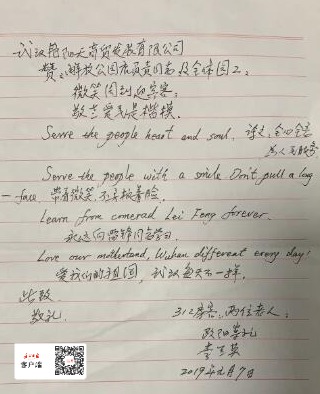 武汉铭阳天商贸发展有限公司
赞:解放公园店负责同志及全体团工:
微笑周到迎宾客,
敬兰爱民是楷模.
Serve the people heart and soul. 译文:全心全意
为人民服务
Serve the people with a smile Don't pull a long
face 带着微笑,不要板着脸.
Learn from comerad Lei Feng forever.
永远向雷锋同志学习.
Love our motherland, Wuhan different every day!
爱我们的祖国,武汉每天不一样.
此致
敬礼.
312房客.两位老人:
欧阳
李
2019元月7日
客户端